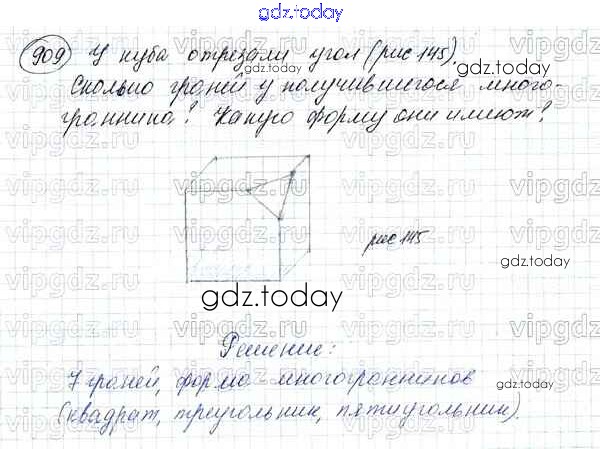 gdz.today
909 У куба отрезали угол (рис 145).
gdz.today
Сколько граней у получившегося много-
гранника? Какую форму они имеют?
gdz.today
рис 145
gdz.today
gdz.today
Решение:
7 граней, форма - многогранников
(квадрат, треугольник, пятиугольник).
gdz.today
vipgdz.ru